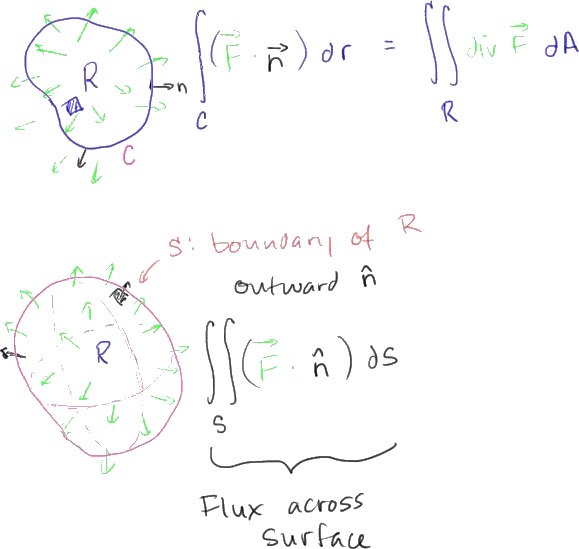 R
n
C
∫_C (F⃗ · n⃗) dr = ∬_R div F⃗ dA
S: boundary of R
outward n̂
R
∬_S (F⃗ · n̂) dS
Flux across
surface